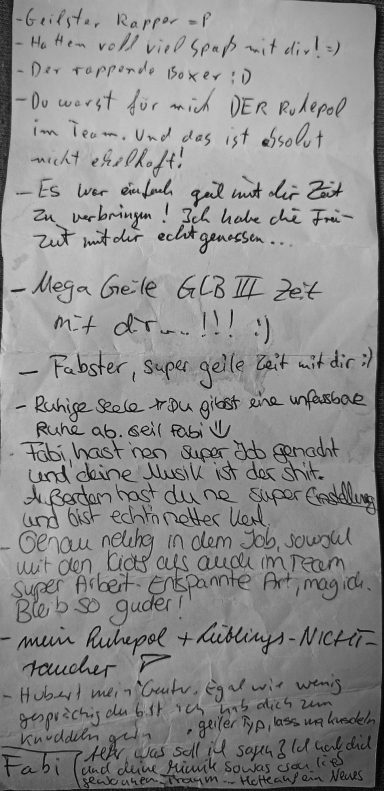 - Geilster Rapper =P
- Hatten voll viel Spaß mit dir! =)
- Der rappende Boxer :D
- Du warst für mich DER Ruhepol
im Team. Und das ist absolut
nicht ekelhaft!
- Es war einfach geil mit dir Zeit
zu verbringen! Ich habe die Frei-
zeit mit dir echt genossen...
- Mega Geile GCB III Zeit
mit dir....!!! :)
- Fabster, super geile Zeit mit dir :)
- Ruhige Seele Du gibst eine unfassbare
Ruhe ab. Geil Fabi
- Fabi, hast nen super Job gemacht
und deine Musik ist der shit.
Außerdem hast du ne super Einstellung
und bist echt'n netter Kerl.
- Genau richtig in dem Job, sowohl
mit den Kids als auch im Team
super Arbeit. Entspannte Art, mag ich.
Bleib so guder!
- mein Ruhepol + Lieblings-NICHT-
raucher
- Hubert mein Guter. Egal wie wenig
gesprächig du bist ich hab dich zum
knuddeln gern . geiler Typ, lass ma knuddeln
Fabi
was soll ich sagen? Ich hab dich
und deine Mimik sowas von lieb
gewonnen, Traum ... Hoffe auf ein Neues